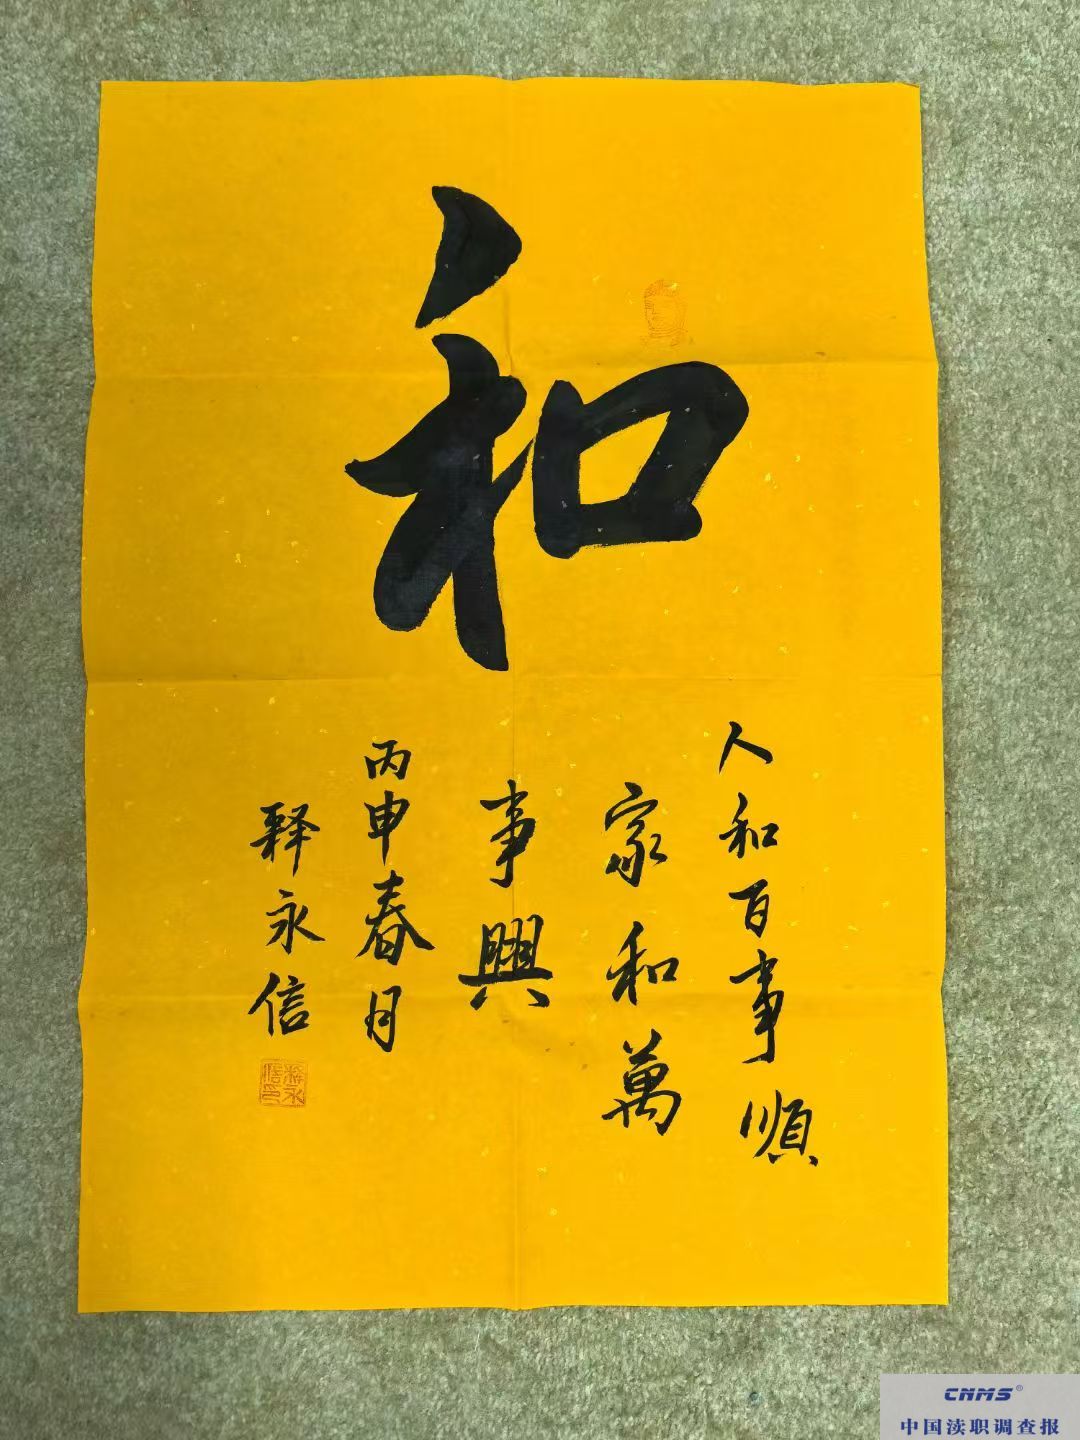 和
人和百事順
家和萬
事興
丙申春月
释永信
释永信印
CNMS®
中国渎职调查报